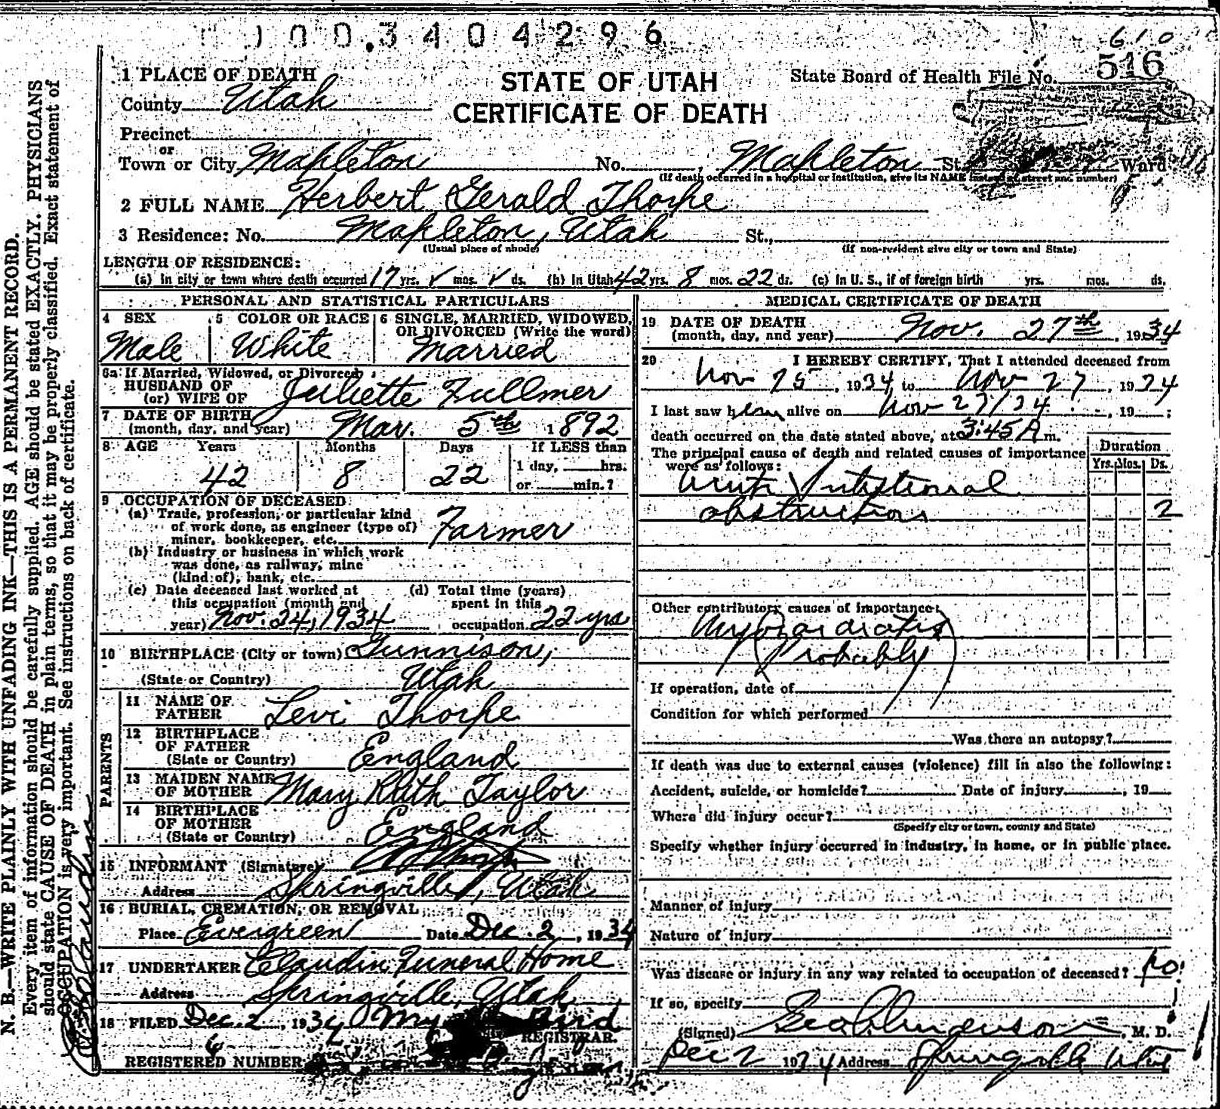 1003404296
610
1 PLACE OF DEATH
STATE OF UTAH
CERTIFICATE OF DEATH
State Board of Health File No. 516
County Utah
Precinct
or
Town or City Mapleton No. Mapleton St. Ward
(If death occurred in a hospital or institution, give its NAME instead of street and number)
2 FULL NAME Herbert Gerald Thorpe
3 Residence: No. Mapleton, Utah St.,
(Usual place of abode) (If non-resident give city or town and State)
LENGTH OF RESIDENCE:
(a) In city or town where death occurred 17 yrs. mos. ds. (b) In Utah 42 yrs. 8 mos. 22 ds. (c) In U. S., if of foreign birth yrs. mos. ds.
PERSONAL AND STATISTICAL PARTICULARS
4 SEX
Male
5 COLOR OR RACE
White
6 SINGLE, MARRIED, WIDOWED,
OR DIVORCED (Write the word)
Married
6a If Married, Widowed, or Divorced
HUSBAND OF
(or) WIFE OF Juliette Fullmer
7 DATE OF BIRTH
(month, day, and year) Mar. 5th 1892
8 AGE Years Months Days If LESS than
42 8 22 1 day, hrs.
or min.?
9 OCCUPATION OF DECEASED
(a) Trade, profession, or particular kind
of work done, as engineer (type of)
miner, bookkeeper, etc. Farmer
(b) Industry or business in which work
was done, as railway, mine
(kind of), bank, etc.
(c) Date deceased last worked at
this occupation (month and
year) Nov. 24, 1934
(d) Total time (years)
spent in this
occupation 22 yrs
10 BIRTHPLACE (City or town) Gunnison,
(State or Country) Utah
PARENTS
11 NAME OF
FATHER Levi Thorpe
12 BIRTHPLACE
OF FATHER
(State or Country) England
13 MAIDEN NAME
OF MOTHER Mary Ruth Taylor
14 BIRTHPLACE
OF MOTHER
(State or Country) England
15 INFORMANT (Signature)
Address Springville, Utah
16 BURIAL, CREMATION, OR REMOVAL
Place Evergreen Date Dec. 2, 1934
17 UNDERTAKER Claudin Funeral Home
Address Springville, Utah
18 FILED Dec. 2, 1934
REGISTRAR.
REGISTERED NUMBER 6
MEDICAL CERTIFICATE OF DEATH
19 DATE OF DEATH
(month, day, and year) Nov. 27th 1934
20 I HEREBY CERTIFY, That I attended deceased from
Nov 25, 1934 to Nov 27, 1934
I last saw him alive on Nov 27/34, 19 ;
death occurred on the date stated above, at 3:45 A m.
The principal cause of death and related causes of importance
were as follows:
Duration
Yrs. Mos. Ds.
Acute Intestional
obstruction 2
Other contributory causes of importance:
Myocardiatis
(Probably)
If operation, date of
Condition for which performed
Was there an autopsy?
If death was due to external causes (violence) fill in also the following:
Accident, suicide, or homicide? Date of injury , 19
Where did injury occur?
(Specify city or town, county and State)
Specify whether injury occurred in industry, in home, or in public place.
Manner of injury
Nature of injury
Was disease or injury in any way related to occupation of deceased? no
If so, specify
(Signed) Geo Anderson M. D.
Dec 2 1934 Address Springville Utah
N. B.—WRITE PLAINLY WITH UNFADING INK—THIS IS A PERMANENT RECORD.
Every item of information should be carefully supplied. AGE should be stated EXACTLY. PHYSICIANS
should state CAUSE OF DEATH in plain terms, so that it may be properly classified. Exact statement of
OCCUPATION is very important. See instructions on back of certificate.